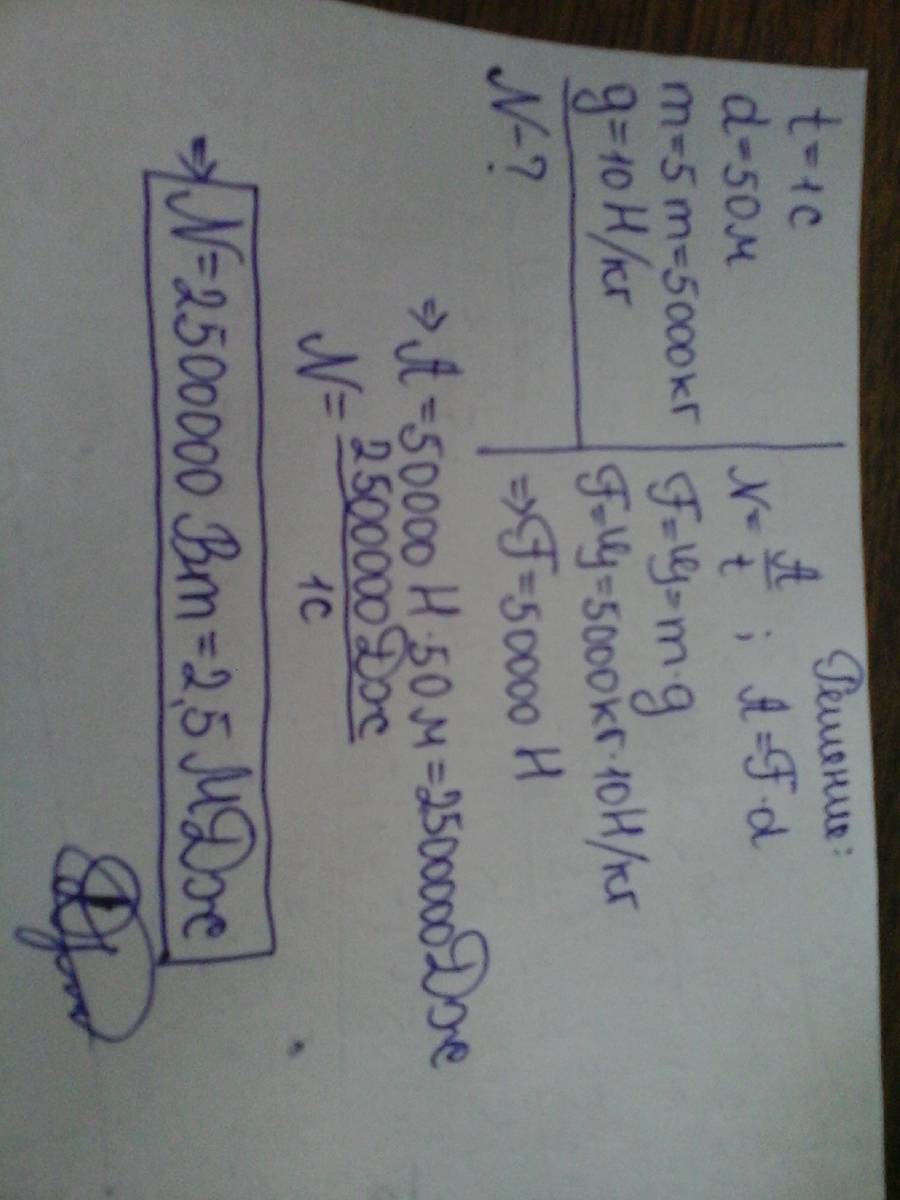 t=1с
d=50м
m=5т=5000кг
g=10Н/кг
N-?
Решение:
N=A/t ; A=F·d
F=m·g
F=5000кг·10Н/кг
⇒F=50000 Н
⇒A=50000 Н·50 м=2500000Дж
N=2500000Дж/1с
⇒N=2500000 Вт=2,5 МДж